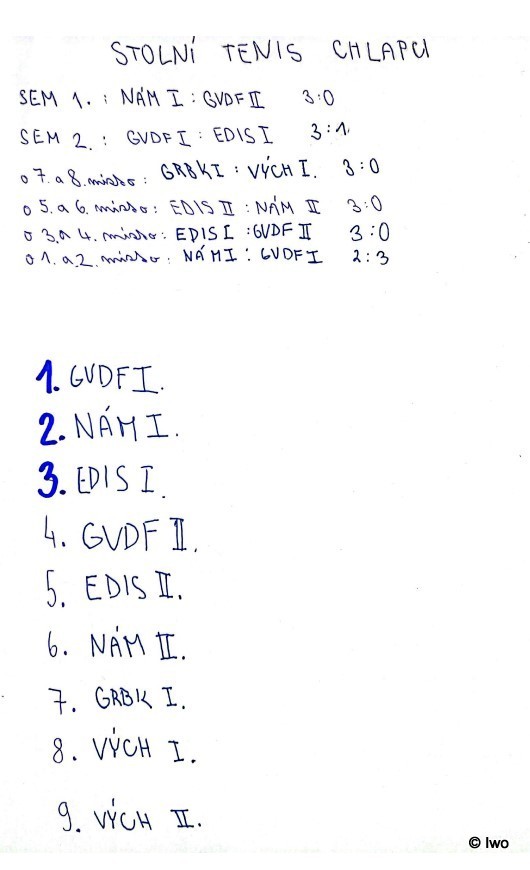 STOLNÍ TENIS CHLAPCI
SEM 1. : NÁM I : GVDF II 3:0
SEM 2. : GVDF I : EDIS I 3:1
o 7. a 8. místo : GRBK I : VÝCH I. 3:0
o 5. a 6. místo : EDIS II : NÁM II 3:0
o 3. a 4. místo : EDIS I : GVDF II 3:0
o 1. a 2. místo : NÁM I : GVDF I 2:3
1. GVDF I.
2. NÁM I.
3. EDIS I.
4. GVDF II.
5. EDIS II.
6. NÁM II.
7. GRBK I.
8. VÝCH I.
9. VÝCH II.
© Iwo